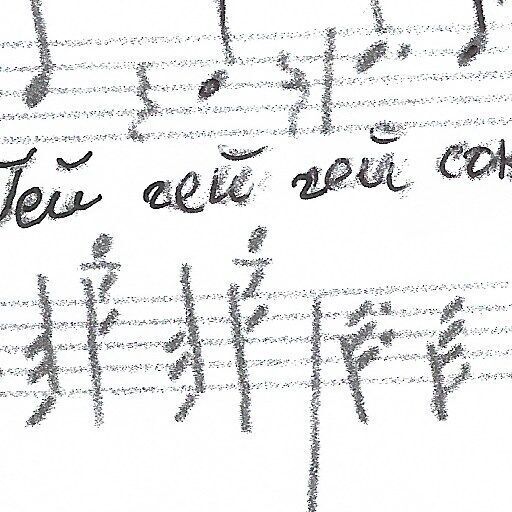 Гей гей гей сок